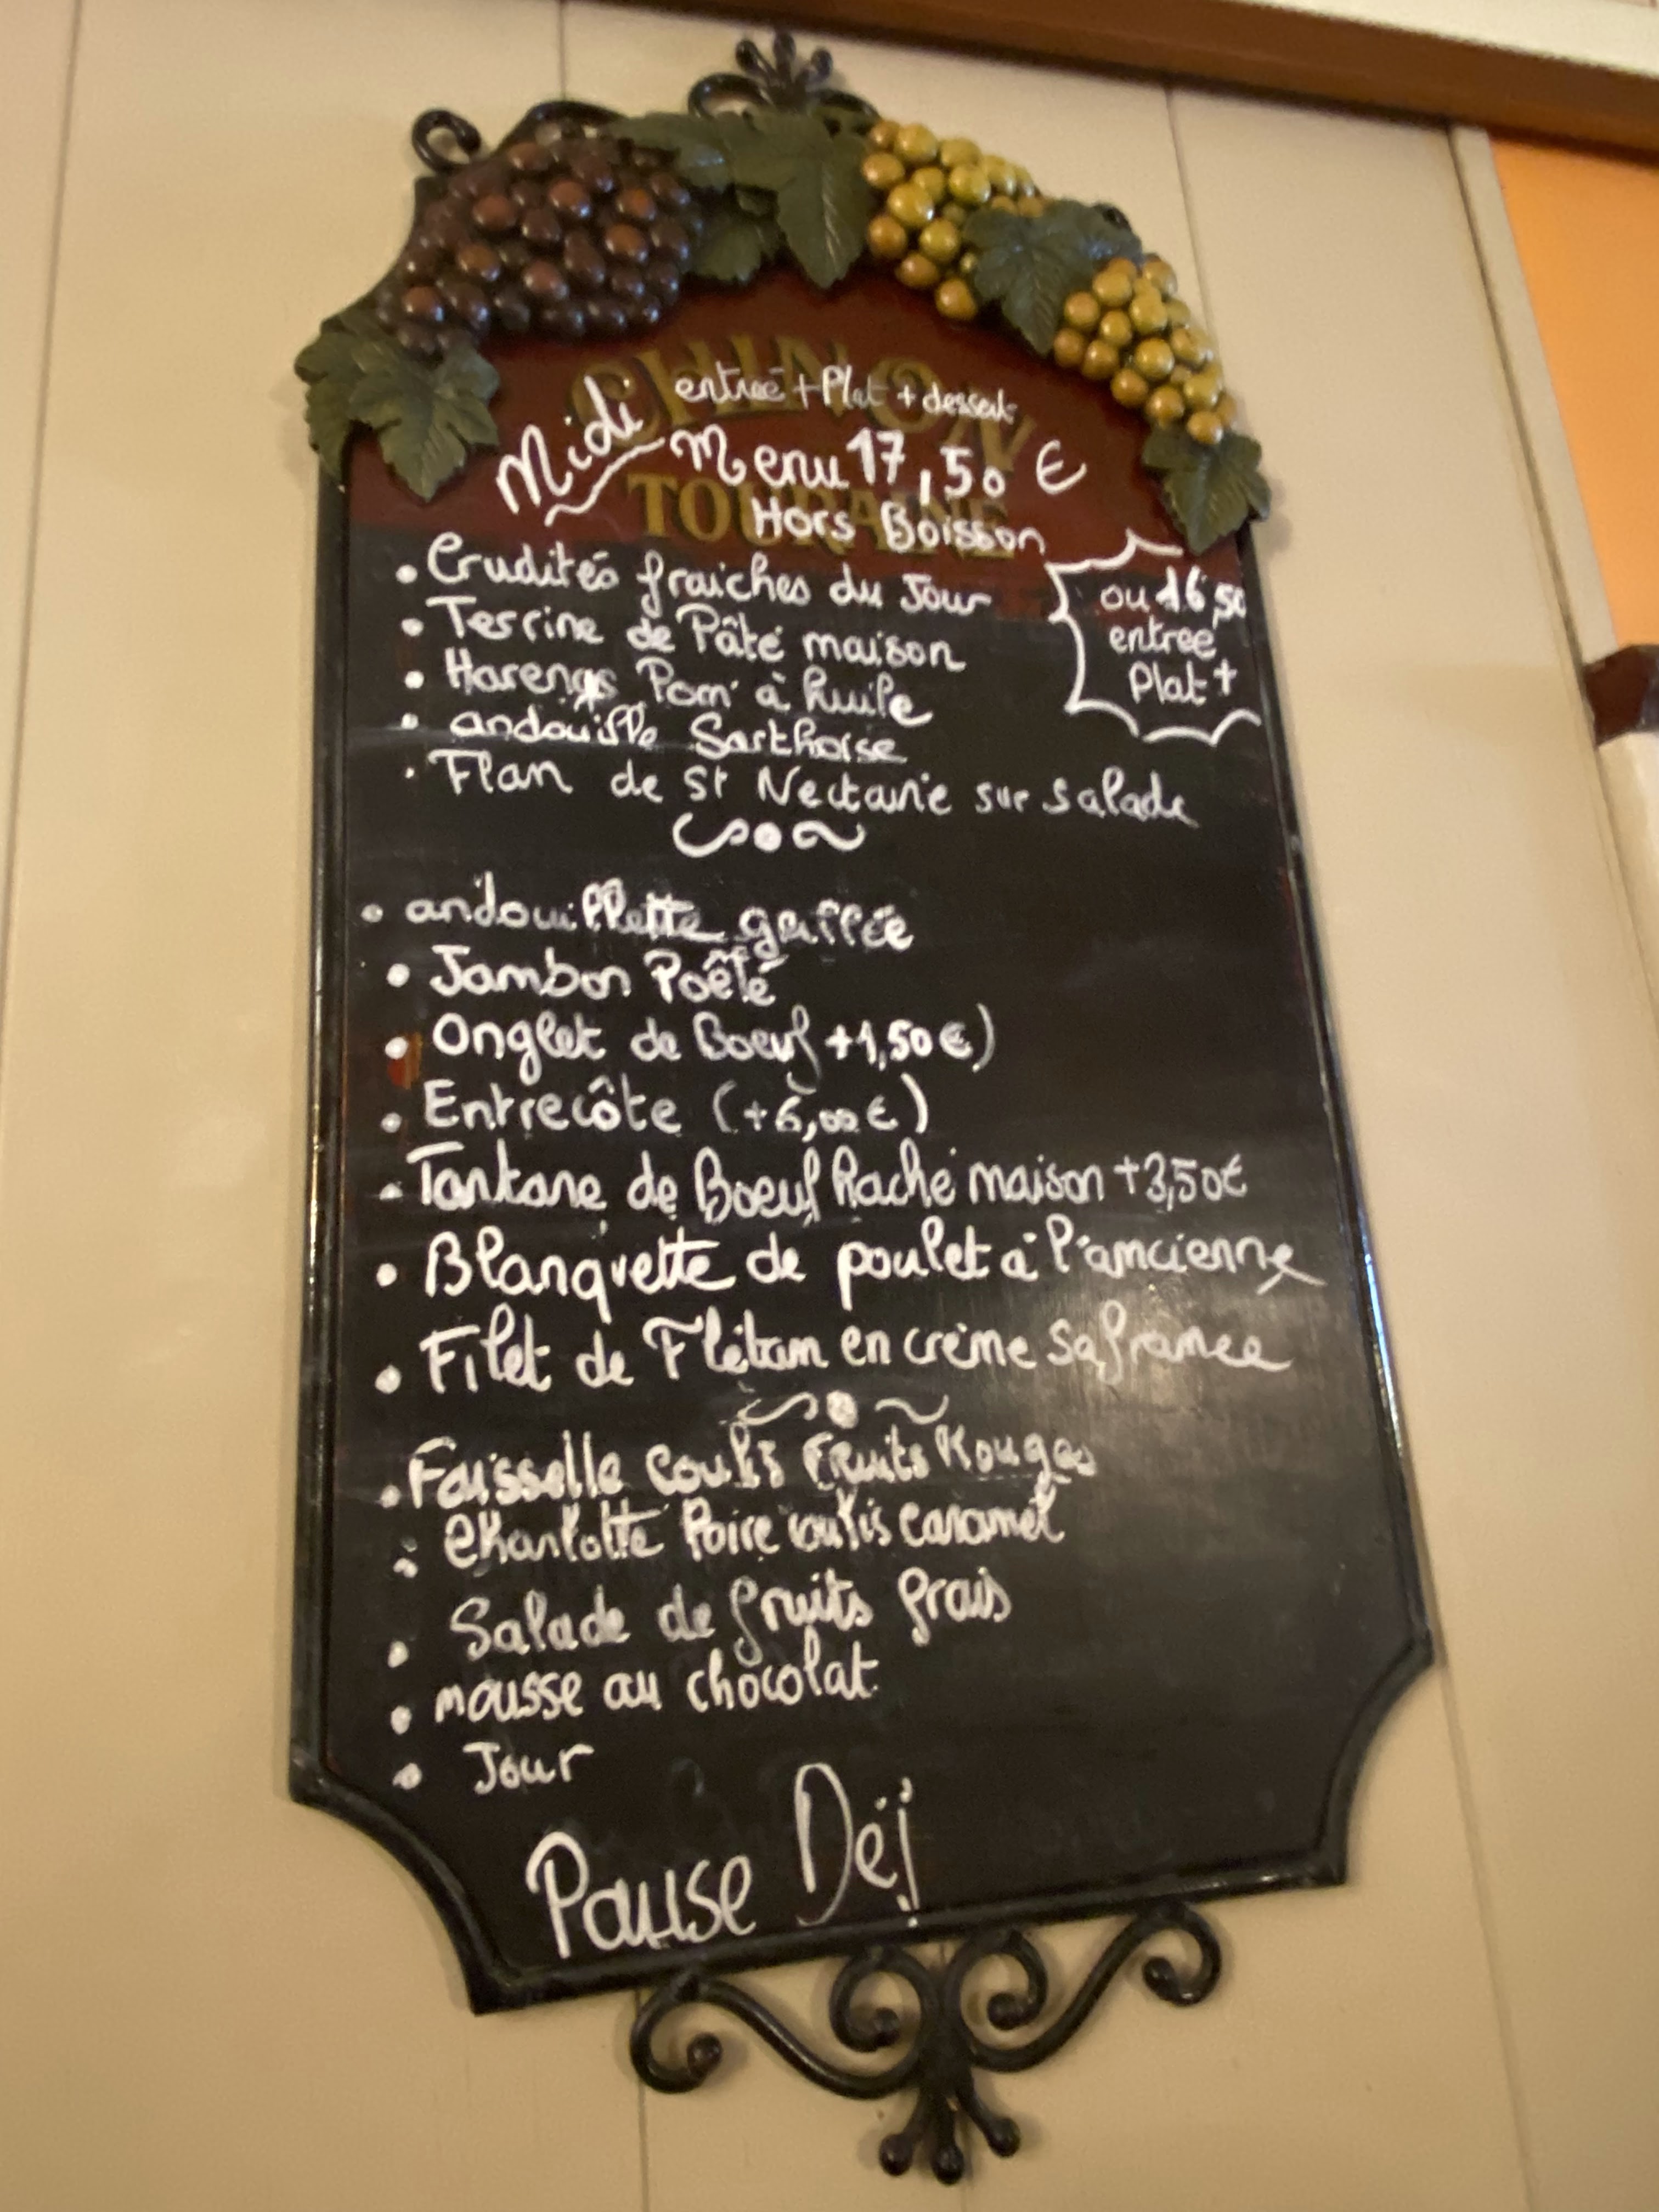 CHINON
TOURAINE
Midi
entreé + Plat + dessert
Menu 17,50 €
Hors Boisson
ou 16,50
entree
Plat +
• Crudités fraiches du Jour
• Terrine de Pâté maison
• Harengs Pom à huile
• andouille Sarthoise
• Flan de St Nectaire sur salade
• andouillette grillée
• Jambon Poêlé
• Onglet de Boeuf +1,50 €)
• Entrecôte (+6,00 €)
• Tartare de Boeuf haché maison +3,50€
• Blanquette de poulet à l'ancienne
• Filet de Flétan en crème Safranee
• Faisselle coulis Fruits Rouges
• Charlotte Poire coulis caramel
• Salade de fruits frais
• mousse au chocolat
• Jour
Pause Déj